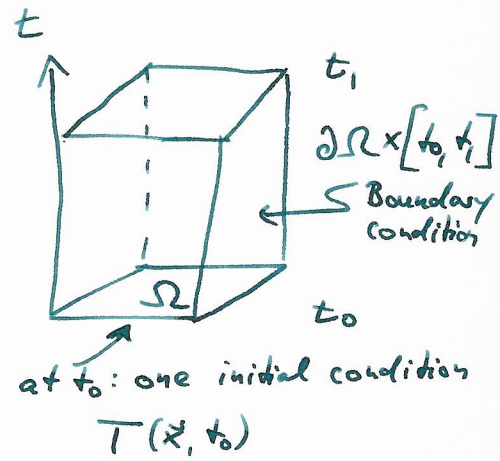 t
t₁
∂Ω × [t₀, t₁]
Boundary
condition
Ω
t₀
at t₀: one initial condition
T(x⃗, t₀)